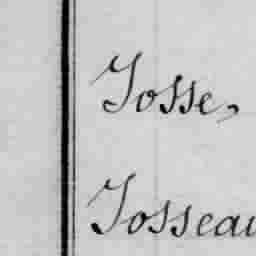 Josse,
Josseau